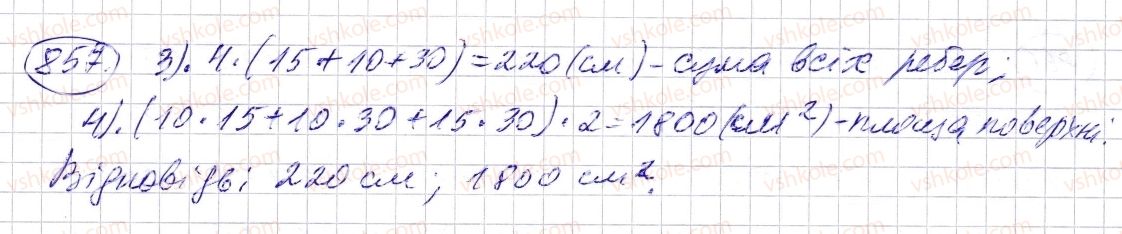 857. 3). 4·(15+10+30)=220(см)-сума всіх ребер;
4).(10·15+10·30+15·30)·2=1800(см²)-площа поверхні.
Відповідь: 220 см; 1800 см².